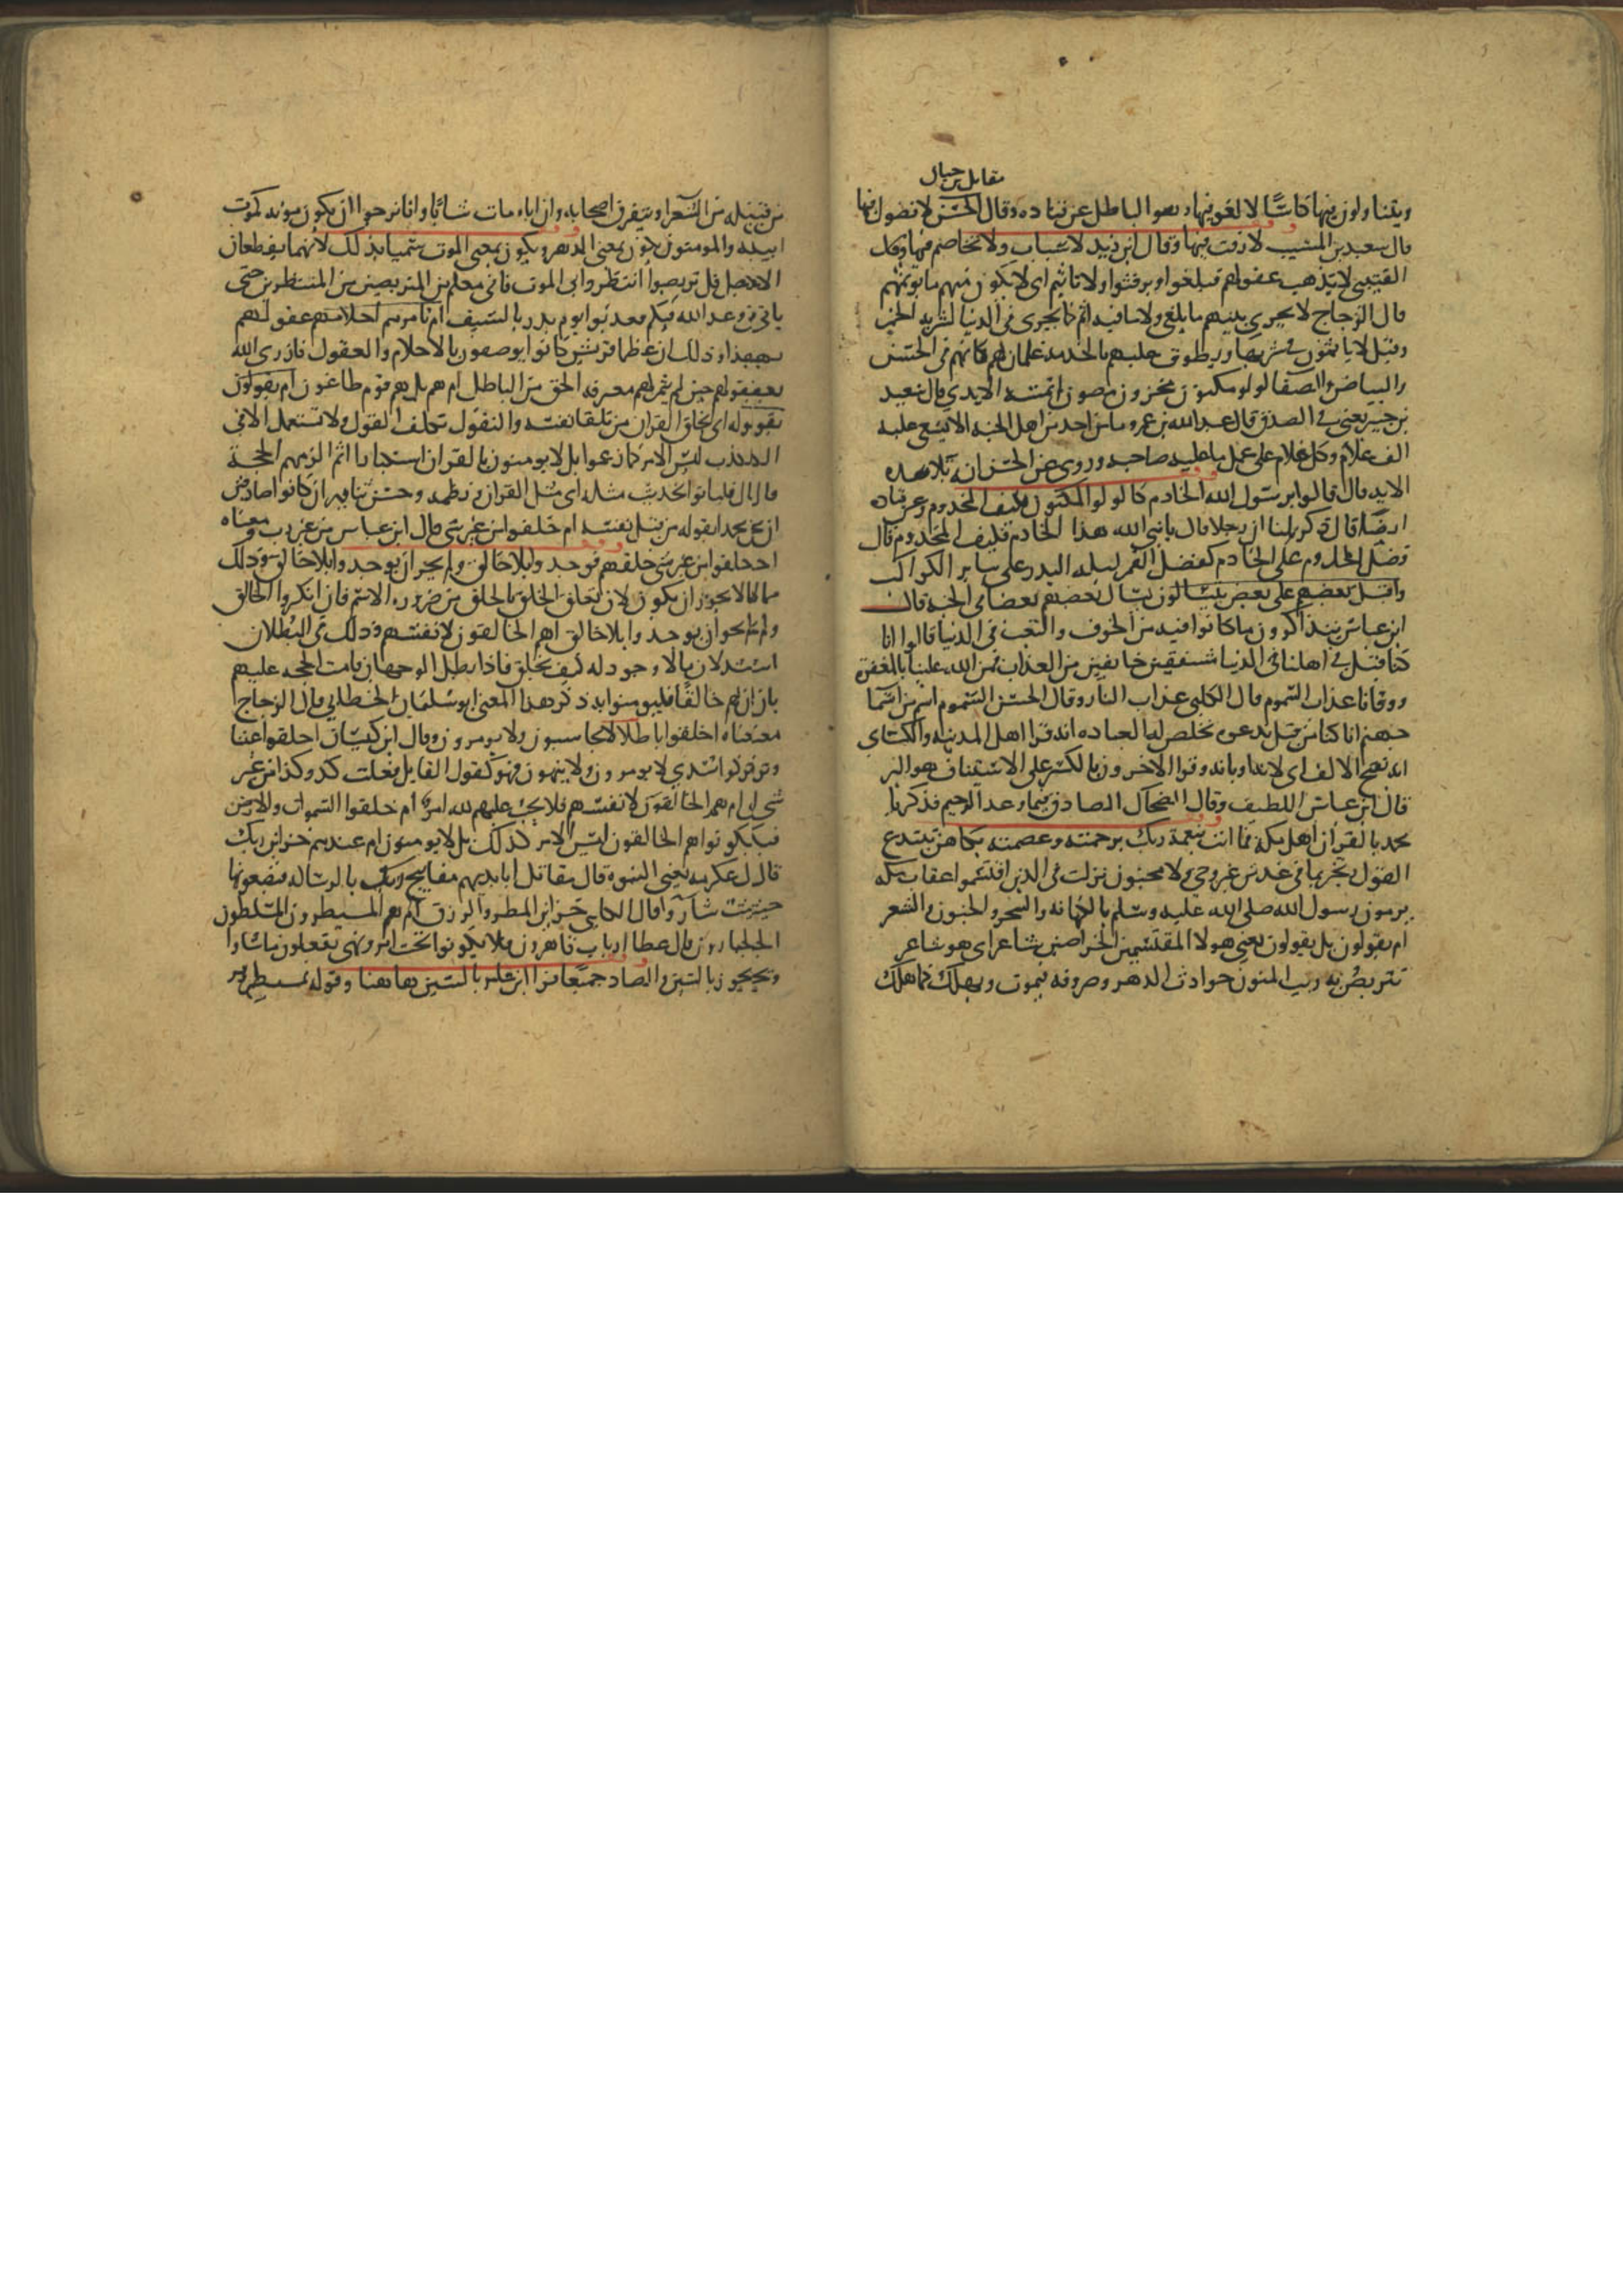 مقاتل بن حيان
ويتناولون فيها كاسا لا لغو فيها وهو الباطل عن قتاده وقال الحسن لا فضول فيها
قال سعيد بن المسيب لا رفث فيها وقال ابن زيد لا سباب ولا تخاصم فيها وقال
القتيبي لا تذهب عقولهم فيلغوا ويرفثوا ولا تاثيم اي لا يكون منهم ما يوثمهم
قال الزجاج لا يجري بينهم ما يلغى ولا ما فيه اثم كما يجري في الدنيا لشربه الخمر
وقيل لا ياثمون في شربها ويطوف عليهم بالخدمة غلمان لهم كانهم في الحسن
والبياض والصفا لولو مكنون مخزون مصون لم تمسه الايدي قال سعيد
بن جبير يعني في الصدف قال عبد الله بن عمرو ما من احد من اهل الجنه الا يسعى عليه
الف غلام وكل غلام على عمل ما عليه صاحبه وروي عن الحسن انه تلا هذه
الايه قال قالوا يرسول الله الخادم كاللولو المكنون فكيف المخدوم وعن قتاده
ايضا قال ذكر لنا ان رجلا قال يا نبي الله هذا الخادم فكيف المخدوم قال
فضل المخدوم على الخادم كفضل القمر ليله البدر على ساير الكواكب
واقبل بعضهم على بعض يتسالون يسال بعضهم بعضا في الجنه قال
ابن عباس يتذاكرون ما كانوا فيه من الخوف والتعب في الدنيا قالوا انا
كنا قبل في اهلنا في الدنيا مشفقين خايفين من العذاب فمن الله علينا بالمغفرة
ووقانا عذاب السموم قال الكلبي عذاب النار وقال الحسن السموم اسم من اسما
جهنم انا كنا من قبل ندعوه نخلص له العباده انه قرا اهل المدينه والكساي
انه بفتح الالف اي لانه او بانه وقرا الاخرون بالكسر على الاستيناف هو البر
قال ابن عباس اللطيف وقال الضحاك الصادق فيما وعد الرحيم فذكر يا
محمد بالقران اهل مكه فما انت بنعمة ربك برحمته وعصمته بكاهن يبتدع
القول ويخبر بما في غد من غير وحي ولا مجنون نزلت في الذين اقتسموا عقاب مكه
يرمون رسول الله صلى الله عليه وسلم بالكهانه والسحر والجنون والشعر
ام يقولون بل يقولون يعني هولا المقتسمين الخراصين شاعر اي هو شاعر
نتربص به ريب المنون حوادث الدهر وصروفه فيموت ويهلك كما هلك
من قبله من الشعرا ويتفرق اصحابه وان اباه مات شابا وانا نرجو ان يكون موته كموت
ابيه والمنون يكون بمعنى الدهر ويكون بمعنى الموت سميا بذلك لانهما يقطعان
الاجل قل تربصوا انتظروا بي الموت فاني معكم من المتربصين من المنتظرين حتى
ياتي وعد الله فيكم فعذبوا يوم بدر بالسيف ام تامرهم احلامهم عقولهم
بهذا وذلك ان عظما قريش كانوا يوصفون بالاحلام والعقول فازرى الله
بعقولهم حين لم يثمر لهم معرفه الحق من الباطل ام هم بل هم قوم طاغون ام يقولون
تقوله اي تخلق القران من تلقا نفسه والتقول تكلف القول ولا يستعمل الا في
الكذب ليس الامر كما زعموا بل لا يومنون بالقران استكبارا ثم الزمهم الحجة
فقال فلياتوا بحديث مثله اي مثل القران في نظمه وحسن بيانه ان كانوا صادقين
ان محمدا يقوله من قبل نفسه ام خلقوا من غير شي قال ابن عباس من غير رب ومعناه
اخلقوا من غير شي خلقهم فوجدوا بلا خالق ولم يجز ان يوجدوا بلا خالق وذلك
مما لا يجوز ان يكون لان تعلق الخلق بالخالق من ضروره الاسم فان انكروا الخالق
ولم يجز ان يوجدوا بلا خالق اهم الخالقون لانفسهم وذلك في البطلان
اشد لان ما لا وجود له كيف يخلق فاذا بطل الوجهان قامت الحجه عليهم
بان لهم خالقا فليومنوا به ذكر هذا المعنى ابو سليمان الخطابي قال الزجاج
معناه اخلقوا باطلا لا يحاسبون ولا يومرون وقال ابن كيسان اخلقوا عبثا
وتركوا سدي لا يومرون ولا ينهون فهو كقول القايل فعلت كذا وكذا من غير
شي ام هم الخالقون لانفسهم فلا يجب عليهم لله امر ام خلقوا السموات والارض
فيكونوا هم الخالقون ليس الامر كذلك بل لا يومنون ام عندهم خزاين ربك
قال عكرمه يعني النبوه قال مقاتل ابايديهم مفاتيح ربك بالرساله فيضعونها
حيث شاوا قال الكلبي خزاين المطر والرزق ام هم المسيطرون المتسلطون
الجبارون قال عطا ارباب قاهرون فلا يكونوا تحت امر ونهي يفعلون ما شاوا
ويجوز بالسين والصاد جميعا قرا ابن عامر بالسين هاهنا وقوله بمسيطر